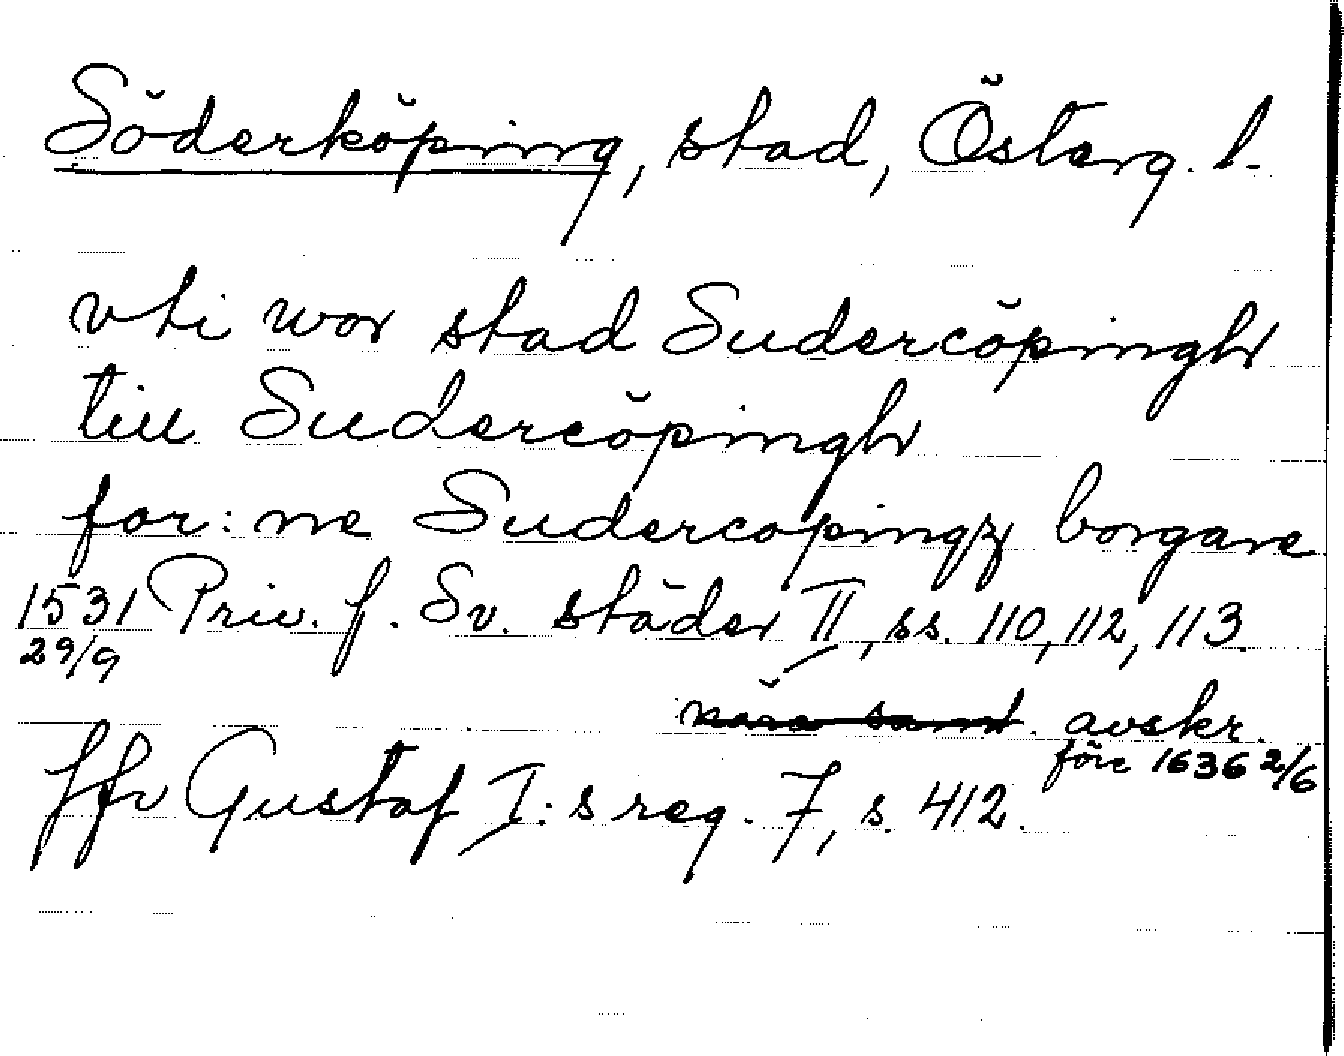 Söderköping, stad, Österg. l.
vti wor stad Sudercöpingh
till Sudercöpingh
for: ne Sudercopingz borgare
1531 Priv. f. Sv. städer II, ss. 110, 112, 113.
29/9
nära samt. avskr.
före 1636 2/6
Jfr Gustaf I:s reg. 7, s. 412.